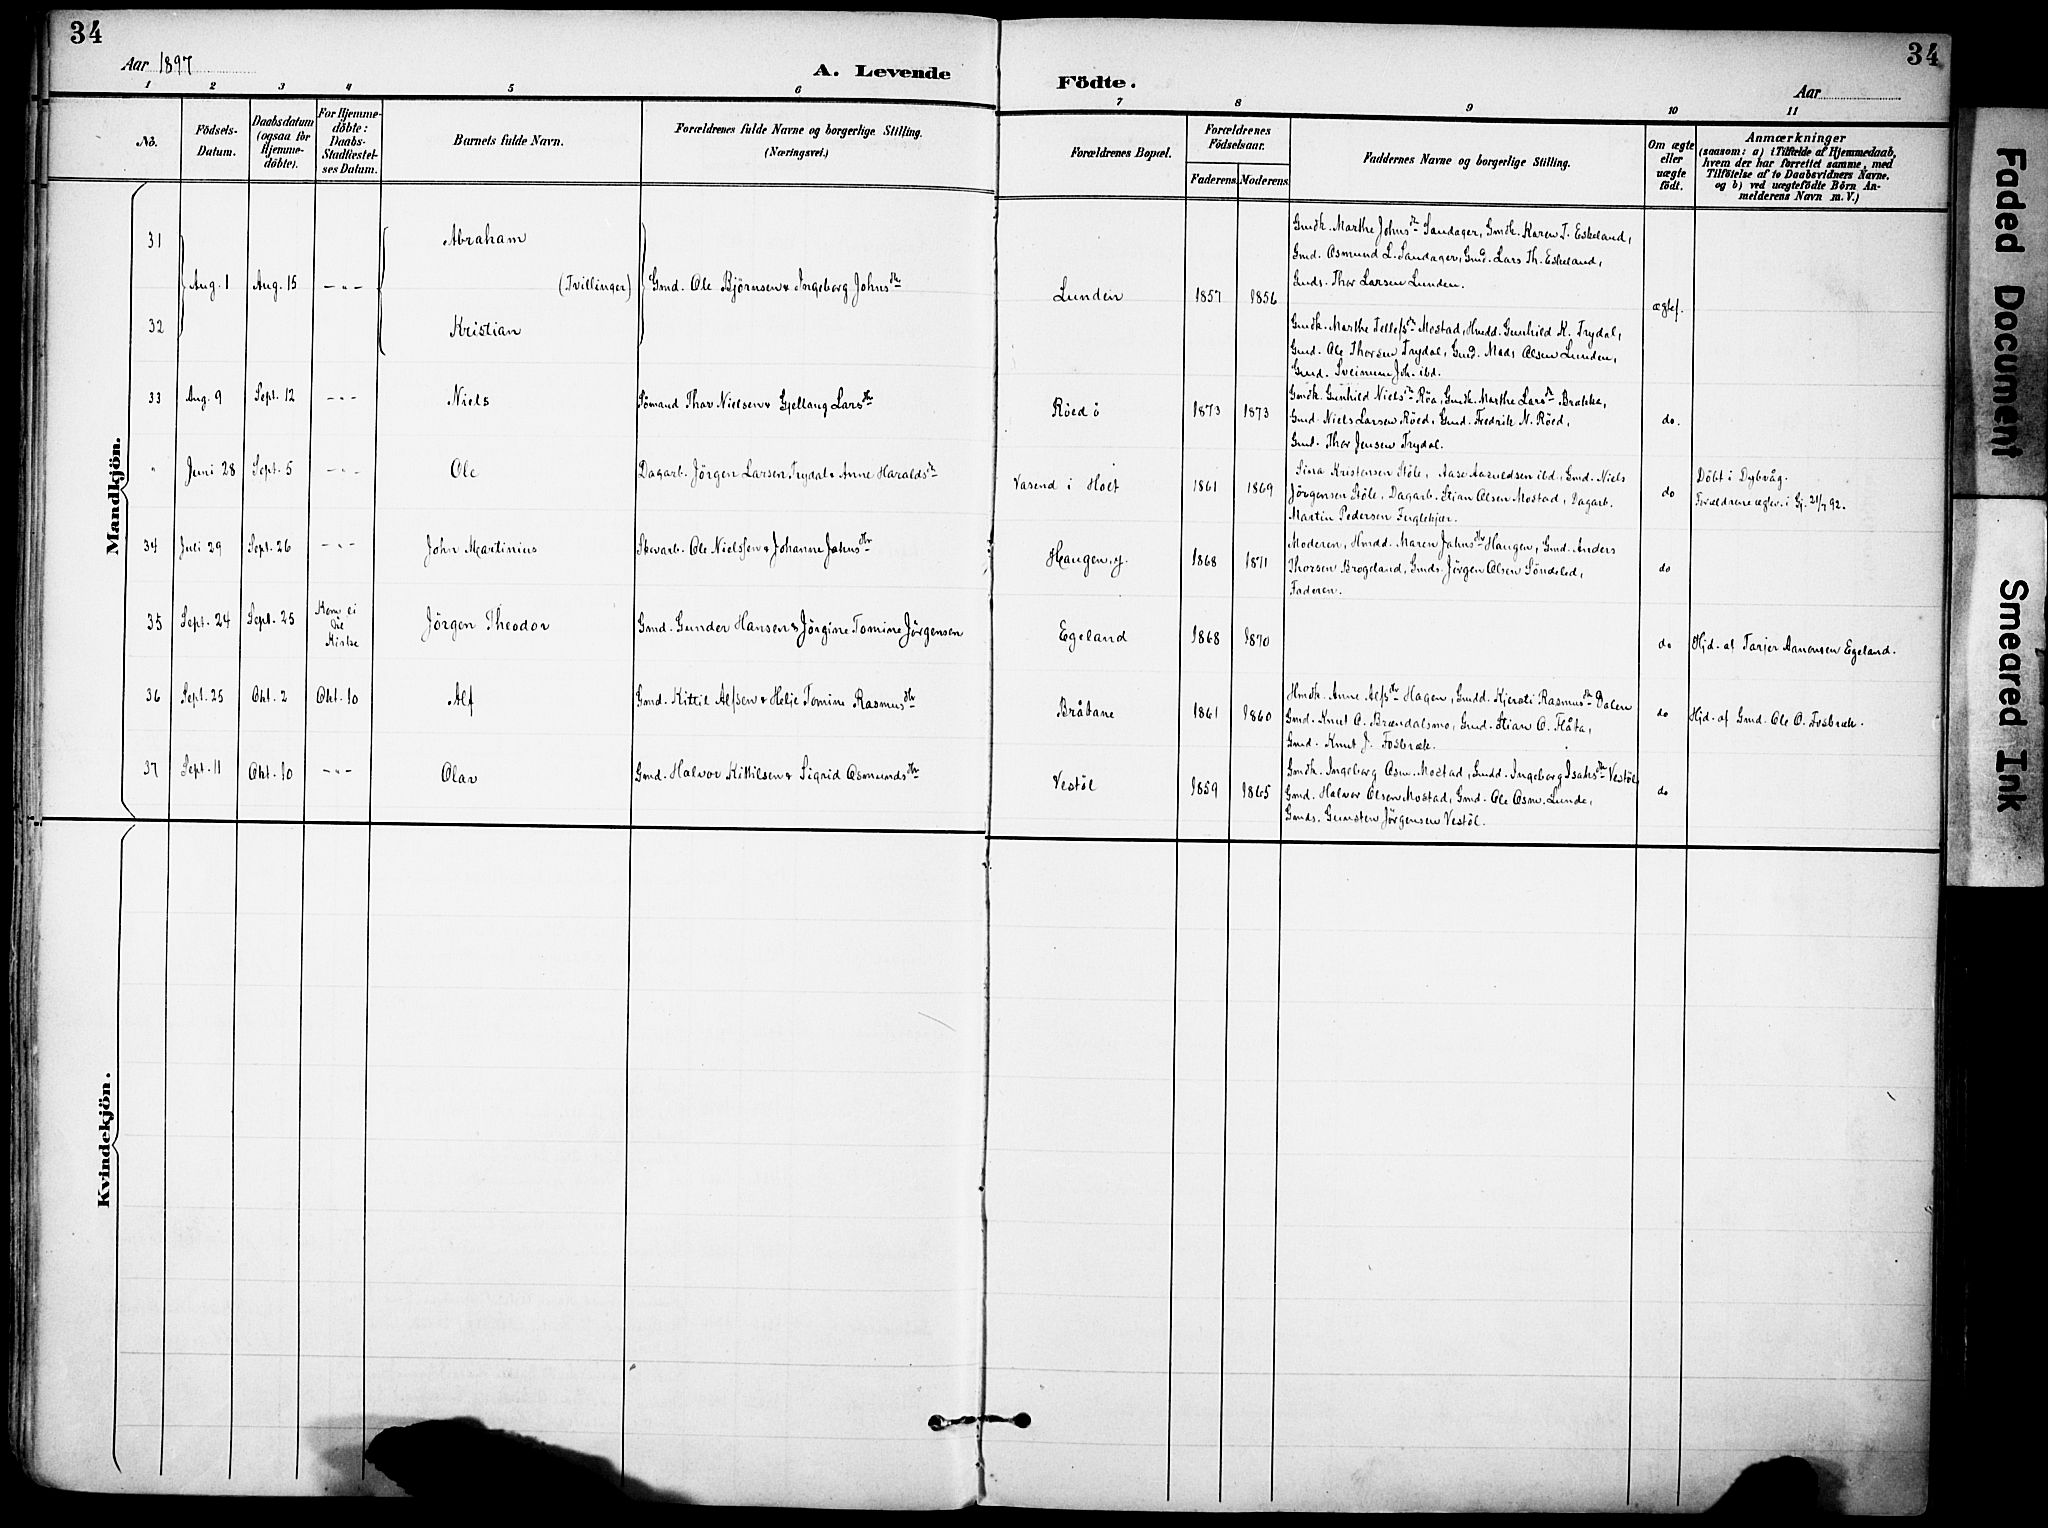 34
Aar 1897
A. Levende
Födte.
Aar
34
1 2 3 4 5 6 7 8 9 10 11
No.
Födsels-
Datum.
Daabsdatum
(ogsaa for
Hjemme-
döbte).
For Hjemme-
döbte:
Daabs-
Stadfæstel-
ses Datum.
Barnets fulde Navn.
Forældrenes fulde Navne og borgerlige Stilling.
(Næringsvei.)
Forældrenes Bopæl.
Forældrenes
Födselsaar.
Faderens. Moderens.
Faddernes Navne og borgerlige Stilling.
Om ægte
eller
uægte
födt.
Anmærkninger
(saasom: a) i Tilfælde af Hjemmedaab,
hvem der har forrettet samme, med
Tilföielse af to Daabsvidners Navne.
og b) ved uægtefödte Börn An-
melderens Navn m. V.)
Mandkjön.
31
32
Aug. 1
Aug. 15
- " -
Abraham
(Tvillinger)
Kristian
Gmd. Ole Björnsen & Ingeborg Johnsdtr
Lunden
1857
1856
Gmdk. Marthe Johnsdtr Sandager, Gmdk. Karen T. Eskeland,
Gmd. Osmund L. Sandager, Gmd. Lars Th. Eskeland,
Gmds. Thor Larsen Lunden.
Gmdk. Marthe Tellefsdtr Mostad, Hmdd. Gunhild K. Trydal,
Gmd. Ole Thorsen Trydal, Gmd. Mads Olsen Lunden,
Gmd. Sveinung Joh. ibd.
ægtef.
33
Aug. 9
Sept. 12
- " -
Niels
Sömand Thor Nielsen & Gjellaug Larsdtr
Röed ö
1873
1873
Gmdk. Gunhild Nielsdtr Röa, Gmdk. Marthe Larsdtr Brakka,
Gmd. Niels Larsen Röed, Gmd. Fredrik N. Röed,
Gmd. Thor Jensen Trydal.
do.
"
Juni 28
Sept. 5
- " -
Ole
Dagarb. Jörgen Larsen Trydal & Anne Haraldsdtr
Vasend i Holt
1861
1869
Sina Kristensen Stöle, Aase Aanuldsen ibd., Gmd. Niels
Jörgensen Stöle, Dagarb. Stian Olsen Mostad, Dagarb.
Martin Pedersen Fuglekjær.
do
Döbt i Dybvåg.
Forældrene ægtev. i Gj. 21/7 92.
34
Juli 29
Sept. 26
- " -
John Martinius
Skovarb. Ole Nielssen & Johanne Johnsdtr
Haugen, y.
1868
1871
Moderen, Hmdd. Maren Johnsdtr Haugen, Gmd. Anders
Thorsen Brogeland, Gmds. Jörgen Olsen Söndeled,
Faderen.
do
35
Sept. 24
Sept. 25
Kom ei
til
Kirke
Jörgen Theodor
Gmd. Gunder Hansen & Jörgine Tomine Jörgensen
Egeland
1868
1870
do
Hjd. af Tarjer Aanonsen Egeland.
36
Sept. 25
Okt. 2
Okt. 10
Alf
Gmd. Kittil Alfsen & Helje Tomine Rasmusdtr
Bråtane
1861
1860
Hmdk. Anne Alfsdtr Hagen, Gmdd. Kjersti Rasmusdtr Dalen
Gmd. Knut O. Brændalsmo, Gmd. Stian O. Flåta,
Gmd. Knut J. Fosbræk.
do
Hjd. af Gmd. Ole O. Fosbræk.
37
Sept. 11
Okt. 10
- " -
Olav
Gmd. Halvor Kittilsen & Sigrid Osmundsdtr
Vestöl
1859
1865
Gmdk. Ingeborg Osm. Mostad, Gmdd. Ingeborg Isaksdtr Vestöl
Gmd. Halvor Olsen Mostad, Gmd. Ole Osm. Lunde,
Gmds. Gumsten Jörgensen Vestöl.
do
Kvindekjön.
Faded Document
Smeared Ink